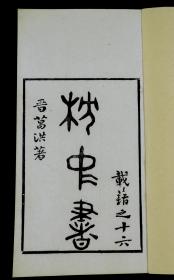 載籍之十六
枕中書
晉葛洪著